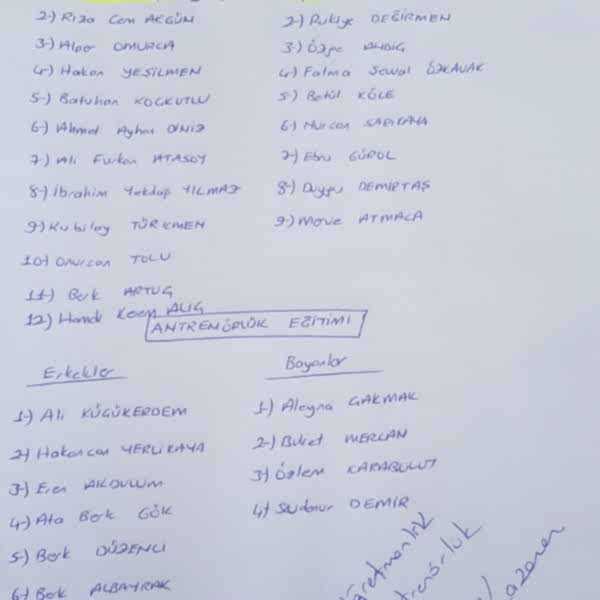 2-) Rıza Cem AKGÜN
3-) Alper OMURCA
4-) Hakan YEŞİLMEN
5-) Batuhan KOÇKUTLU
6-) Ahmet Ayhan DİNİZ
7-) Ali Furkan ATASOY
8-) İbrahim YILMAZ
9-) Kubilay TÜRKMEN
10-) Onurcan TOLU
11-) Berk ARTUÇ
12-) Hamdi Kerem ALIÇ
2-) Rukiye DEĞİRMEN
3-) Özge
4-) Fatma ÖZKAVAK
5-) Betül KÖLE
6-) Nurcan SARIKAYA
7-) Ebru GÜROL
8-) Duygu DEMİRTAŞ
9-) Merve ATMACA
ANTRENÖRLÜK EĞİTİMİ
Erkekler
1-) Ali KÜÇÜKERDEM
2-) Hakancan YERLİKAYA
3-) Eren AKDULUM
4-) Ata Berk GÖK
5-) Berk DÜZENLİ
6-) Berk ALBAYRAK
Bayanlar
1-) Aleyna ÇAKMAK
2-) Buket MERCAN
3-) Özlem KARABULUT
4-) Sudenur DEMİR